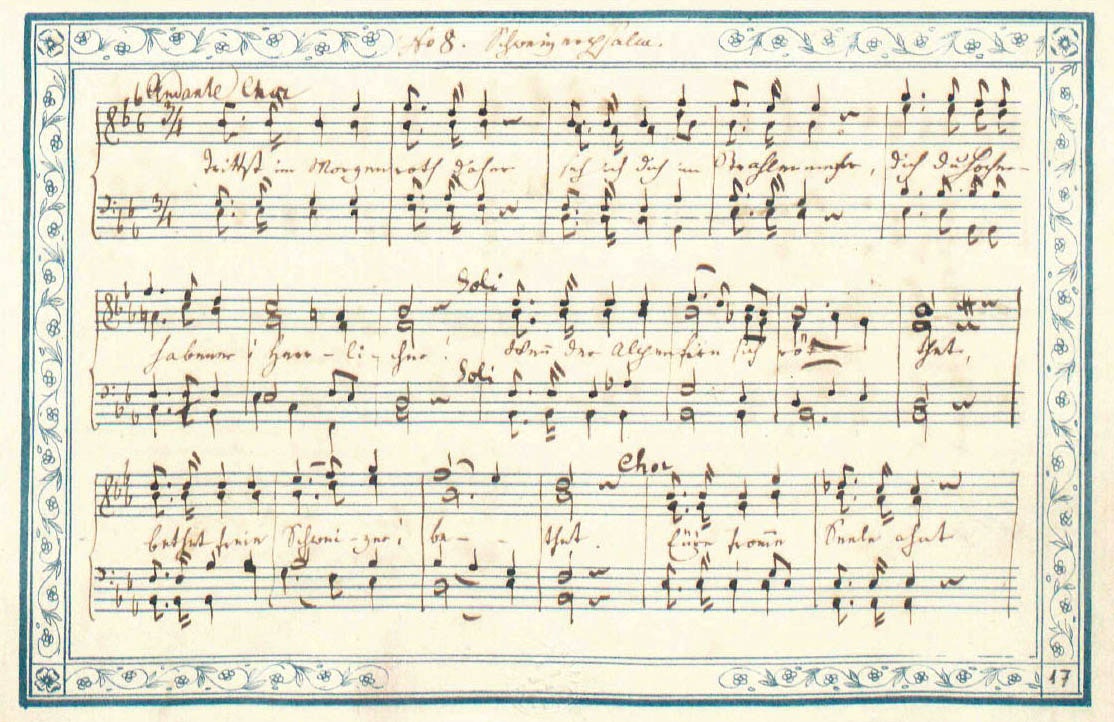 No 8. Schweizerpsalm.
Andante Chor
3/4
Trittst im Morgenroth daher seh ich dich im Strahlenmeer, dich du Hocher-
3/4
Soli
habener! Herr-li-cher! Wenn der Alpenfirn sich röthet,
Soli
Chor
bethet freie Schweizer! be- - thet. Eure fromme Seele ahnt
17